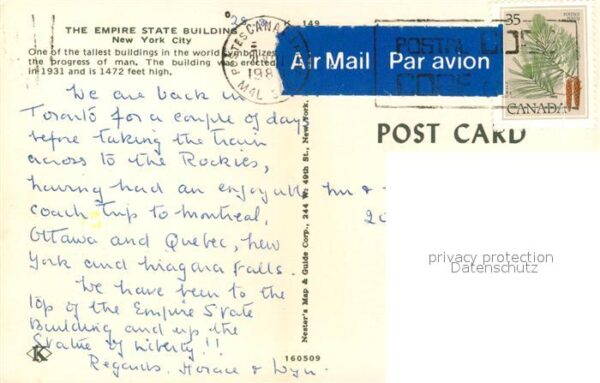 THE EMPIRE STATE BUILDING
New York City
One of the tallest buildings in the world symbolizes
the progress of man. The building was erected
in 1931 and is 1472 feet high.
K 149
POSTES CANADA
198
M4L
POSTAL CODE
CODE
Air Mail Par avion
35
CANADA
POST CARD
We are back in
Toronto for a couple of days
before taking the train
across to the Rockies,
having had an enjoyable
coach trip to Montreal,
Ottawa and Quebec, New
York and Niagara Falls.
We have been to the
top of the Empire State
Building and up the
Statue of Liberty!!
Regards, Horace & Wyn.
Nester's Map & Guide Corp., 244 W. 49th St., New York,
160509
K
20
privacy protection
Datenschutz